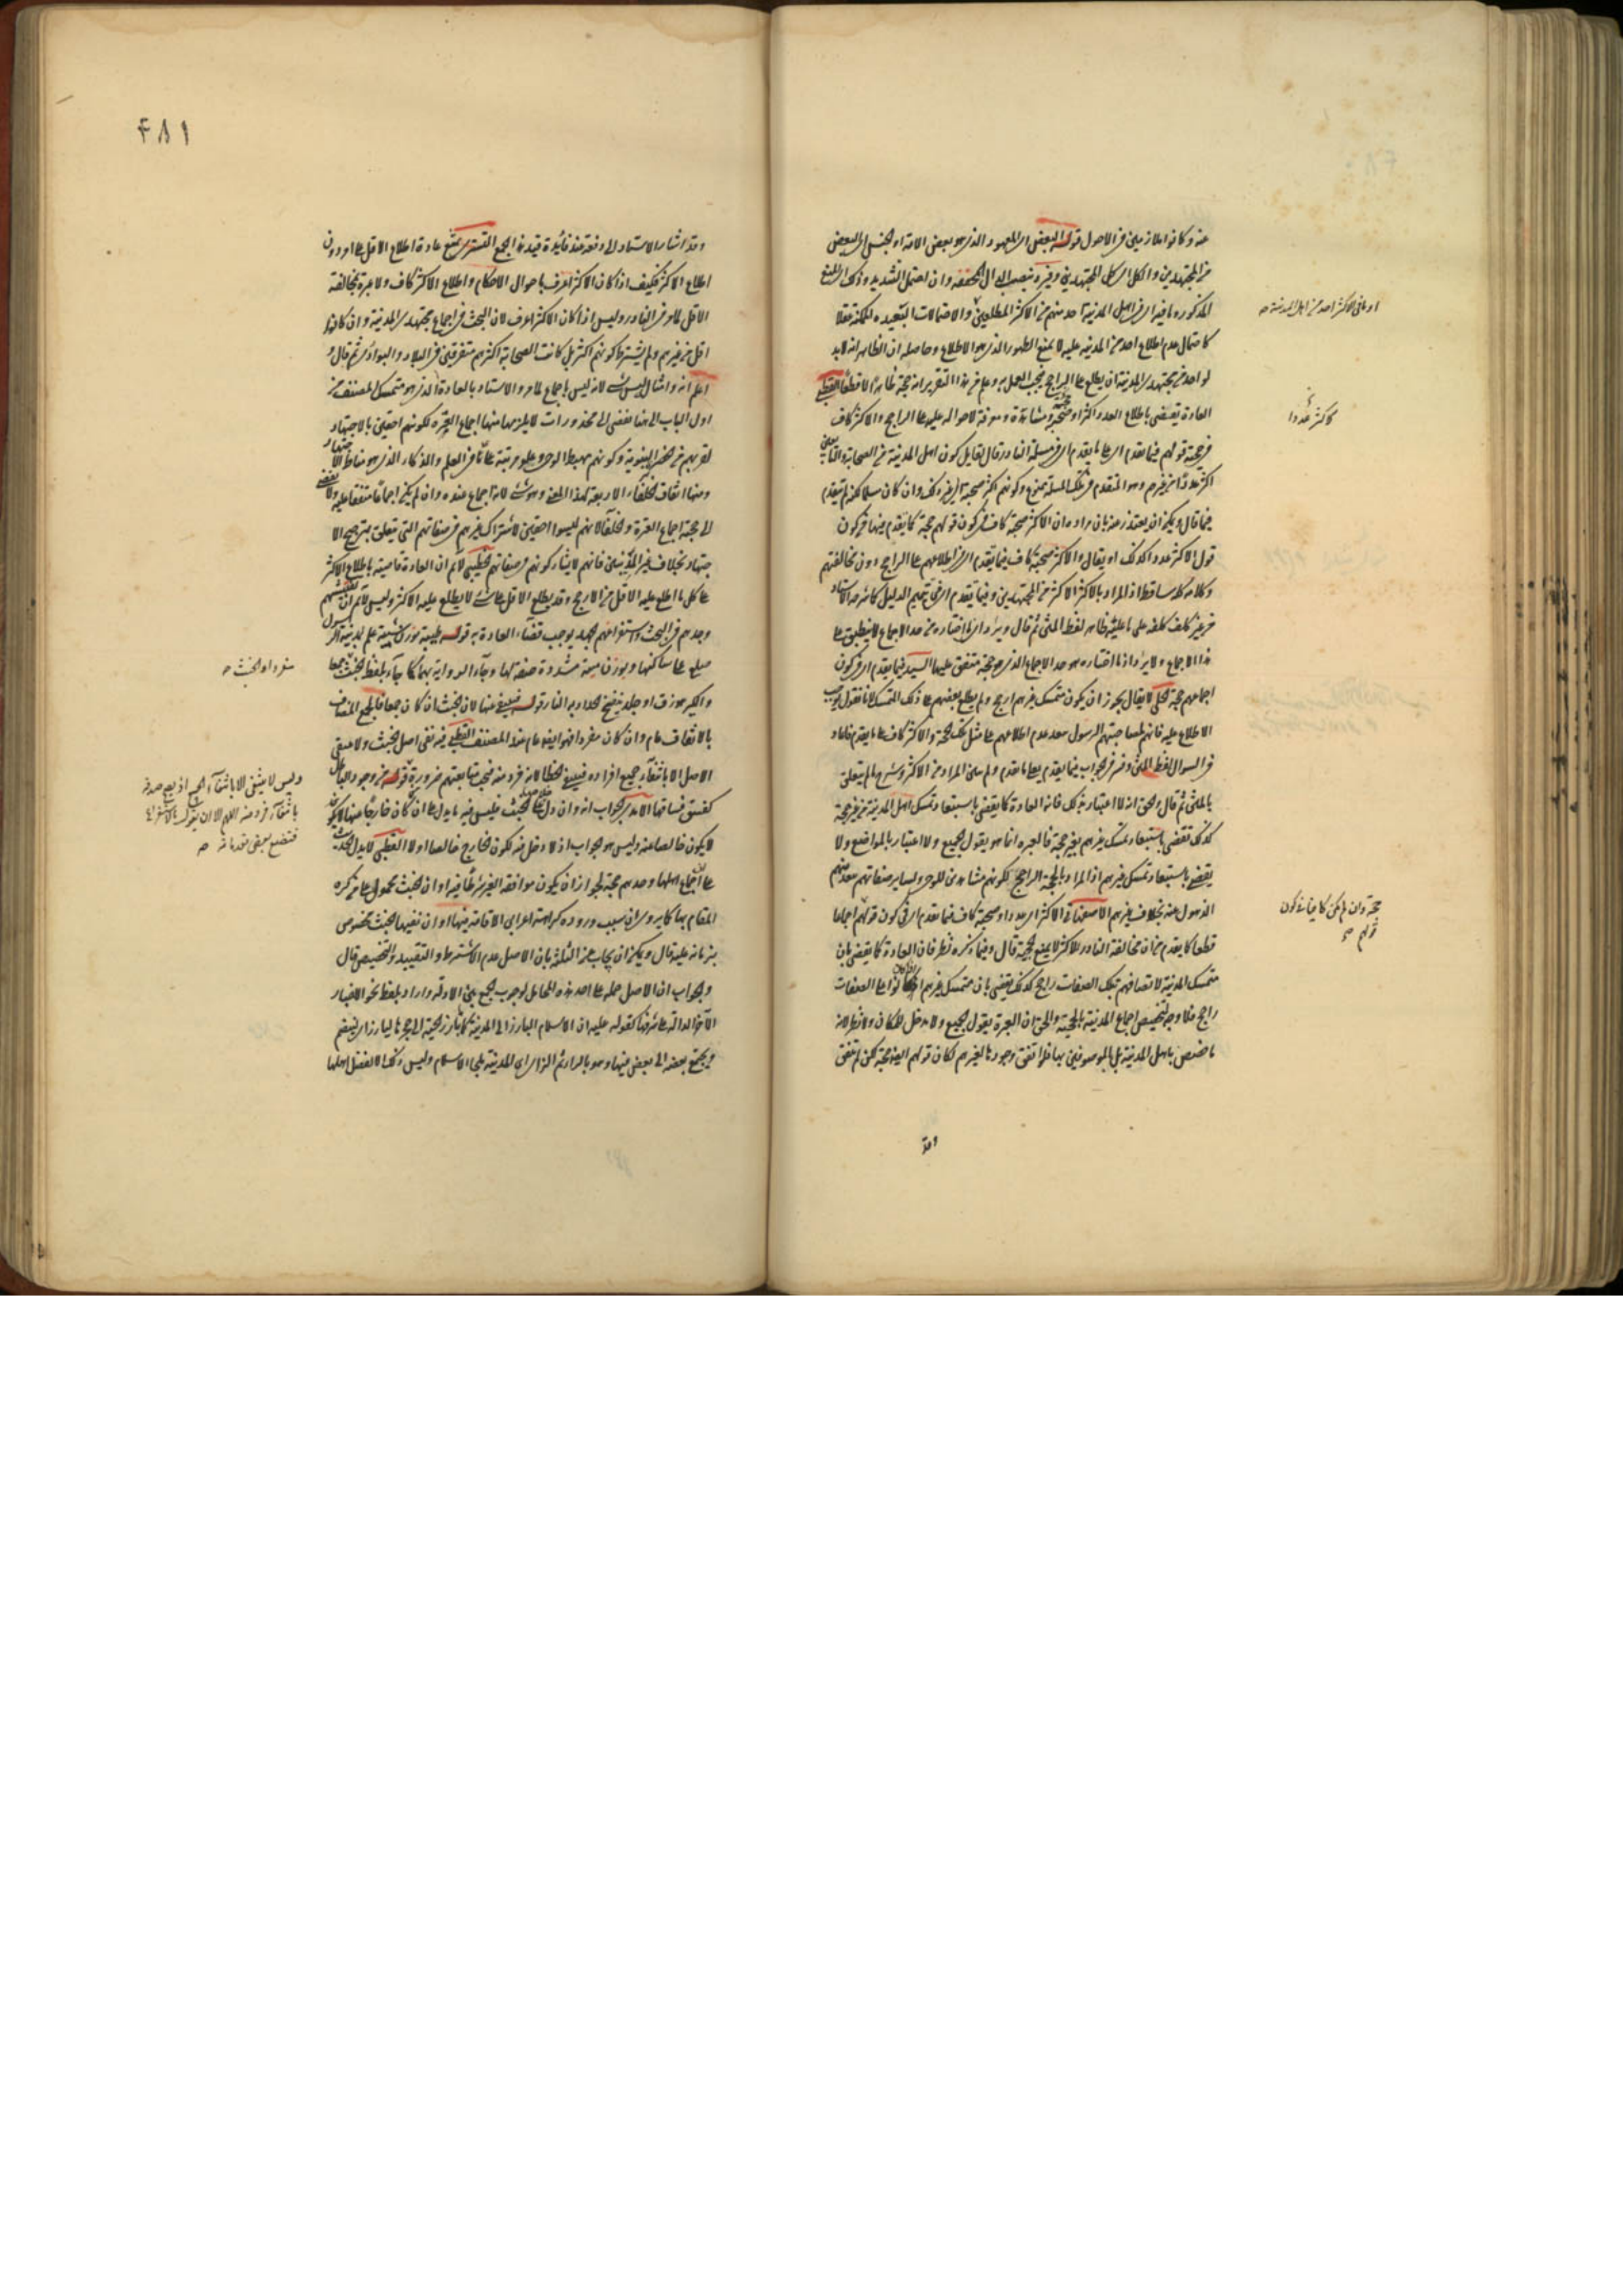 عنه وكانوا ملازمين في الاصول قوله البعض اى المعهود الذى هو بعض الامة او الجنس اى البعض
من المجتهدين والكل اى كل المجتهدين وغيره بنصب ال المخففة وان احتمل التشديد وذلك اى المنع
المذكور وما فيه اى فى اهل المدينة احد منهم من الاكثر المطلعين والاحتمالات البعيدة الممكنة عقلا
كاحتمال عدم اطلاع احد من المدينة عليه لا يمنع الظهور الذى هو الاطلاع وحاصله ان الظاهر انه لابد
لواحد من مجتهدى المدينة ان يطلع على الراجح فيجب العمل به وعلم من هذا التقرير انه حجة ظاهرا لا قطعا القطبى
العادة تقتضى باطلاع العدد اكثر او صحبة ومشاهدة ومعرفة لاحواله عليه على الراجح والاكثر كاف
فى حجة قولهم فيما تقدم اى على ما تقدم اى فى مسئلة النادر قال لقايل كون اهل المدينة من الصحابة والتابعين
اكثر عددا من غيرهم وهو المتقدم فى تلك المسئلة ممنوع وكونهم اكثر صحبة اى غير ذلك وان كان مسلما لكن لم يتقدم
فيما قال ويمكن ان يعتذر عنه بان مراده ان الاكثر صحبة كاف فى كون قولهم حجة كما تقدم منها فى كون
قول الاكثر عددا كذلك او يقال والاكثر صحبة كاف فيما تقدم اى فى اطلاعهم على الراجح دون مخالفتهم
وكلامه كله ساقط اذ المراد بالاكثر الاكثر من المجتهدين وفيما تقدم اى فى تتميم الدليل كما شرحه الاستاد
من غير تكلف على ما عليه ظاهر لفظ المتن ثم قال ويراد ان ما اختاره من حد الاجماع لا ينطبق على
هذا الاجماع ولا يراد اذ ما اختاره هو حد الاجماع الذى هو حجة متفق عليها السيد فيما تقدم اى فى كون
اجماعهم حجة الحلى لا يقال يجوز ان يكون متمسك غيرهم ارجح ولم يطلع بعضهم على ذلك المتمسك لانا نقول يجب
الاطلاع عليه فانهم لمصاحبتهم الرسول يبعد عدم اطلاعهم على مثل تلك الحجة والاكثر كاف على ما يقدم فاعاد
فى السؤال لفظ المتن وفسر فى الجواب فيما يقدم بعلى ما تقدم ولم يبين المراد من الاكثر وشرحها لم يتعلق
بالمتن ثم قال والحق انه لا اعتبار بذلك فان العادة كما تقتضى باستبعاد تمسك اهل المدينة من غير حجة
كذلك تقتضى باستبعاد تمسك غيرهم بغير حجة فالعبرة انما هو بقول الجميع ولا اعتبار بالمواضع ولا
يقتضى باستبعاد تمسك غيرهم اذ المراد بالحجة الراجح لكونهم مشاهدين للوحى ولساير صفاتهم يبعد منهم
الذهول عنه بخلاف غيرهم الاصفهانى الاكثر اى عددا وصحبة كاف فيما تقدم اى فى كون قولهم اجماعا
قطعا كما يقدم من ان مخالفة النادر للاكثر لا يمنع الحجة قال وفيما ذكره نظر فان العادة كما تقتضى بان
متمسك المدينة لاتصافهم بتلك الصفات راجح كذلك تقتضى بان متمسك غيرهم اذا كانوا على الصفات
راجح فلا وجه لتخصيص اجماع المدينة بالحجية والحق ان العبرة بقول الجميع ولا مدخل للمكان ولا نظر لانه
ما خصص باهل المدينة بل بالموصوفين بها فلو اتفق وجودها لغيرهم لكان قولهم ايضا حجة لكن لم يتفق
او ما فى الاكثر احد من اهل المدينة صح
كاكثر عددا
حجة وان لم يكن كاف فى كون
قولهم صح
وقد
٤٨١
وقد اشار الاستاد الى دفعه منذ فائدة قيد هذا الجمع التسترى يمتنع عادة اطلاع الاقل على امر دون
اطلاع الاكثر فكيف اذا كان الاكثر اعرف باحوال الاحكام واطلاع الاكثر كاف ولا عبرة بمخالفة
الاقل لما مر فى النادر وليس اذا كان الاكثر اعرف لان البحث فى اجماع مجتهدى المدينة وان كانوا
اقل من غيرهم ولم يشترط كونهم اكثر بل كانت الصحابة اكثرهم متفرقين فى البلاد والبوادى ثم قال و
اعلم انه وامثال ليس شئ لانه ليس باجماع لما مر والاستناد بالعادة الذى هو متمسك المصنف من
اول الباب الى هنا يفضى الى محذورات لا يلزمها منها اجماع العترة لكونهم احقين بالاجتهاد
لقربهم من الحضرة النبوية وكونهم مهبط الوحى وعلو مرتبة على فى العلم والذكاء الذى هو مناط الاجتهاد
ومنها اتفاق الخلفاء الاربعة لهذا المعنى وهو شئ لانه اجماع عنده وان لم يكن اجماعا متفقا عليه ولا يفضى
الى حجة اجماع العترة والخلفا لانهم ليسوا احقين لاشتراك غيرهم فى صفاتهم التى تتعلق بترجيح الا
جتهاد بخلاف غير المدنيين فانهم لا يشاركونهم فى صفاتهم الخطيبى لا نم ان العادة قاضية باطلاع الاكثر
على كل ما اطلع عليه الاقل من الارجح وقد يطلع الاقل على شئ لا يطلع عليه الاكثر وليس لا نم ان تفتيشهم
وجدهم فى البحث واستفراغهم الجهد يوجب قضاء العادة به قوله طيبة بوزن شيبة علم لمدينة الرسول
صلعم على ساكنها وبوزن سيدة مشددة صفة لها وجاء الرواية بهما كما جاء بلفظ الخبث جمعا
والكير هو زق او جلد ينفخ الحداد به النار قوله فينتفى عنها لان خبث ان كان جمعا فالجمع المضاف
بالاتفاق عام وان كان مفردا فهو ايضا عام عند المصنف القطبى فيه نفى اصل الخبث ولا ينتفى
الاصل الا بانتفاء جميع افراده فينتفى الخطا لانه فرد منه فيجب متابعتهم ضرورة قوله من وجود الباطل
كفسق فساقها الآمدى الجواب انه وان دل على خلاصها عن الخبث فليس فيه ما يدل على ان كل من كان خارجا عنها لا يكون
لا يكون خالصا عنه وليس هو الجواب اذ لا دخل فيه لكون الخارج خالصا او لا القطبى لا يدل الحديث
على ان اجماع اهلها وحدهم حجة لجواز ان يكون موافقة الغير شرطا فيه او ان الخبث محمول على من كره
المقام بها كما يروى ان سبب وروده كراهة اعرابى الاقامة فيها او ان نفيها الخبث مخصوص
بزمانه عليه قال ويمكن ان يجاب عن الثلثة بان الاصل عدم الاشتراط والتقييد والتخصيص قال
والجواب ان الاصل حمله على احد هذه المحامل لوجوب الجمع بين الادلة واراد بلفظ نحو الاخبار
الآخر الدالة على شرفها كقوله عليه ان الاسلام ليارز الى المدينة كما تارز الحية الى جحرها ليارز اى ينضم
ويجتمع بعضه الى بعض فيها وهو بالراء ثم الزاى اى المدينة ملجا الاسلام وليس ذلك الا لفضل اهلها
مفردا والخبث صح
وليس لا ينتفى الا بانتفاء الجميع اذ يصح صدقه
بانتفاء فرد منه اللهم الا ان يقول
فتضع بعض مقدماته صح